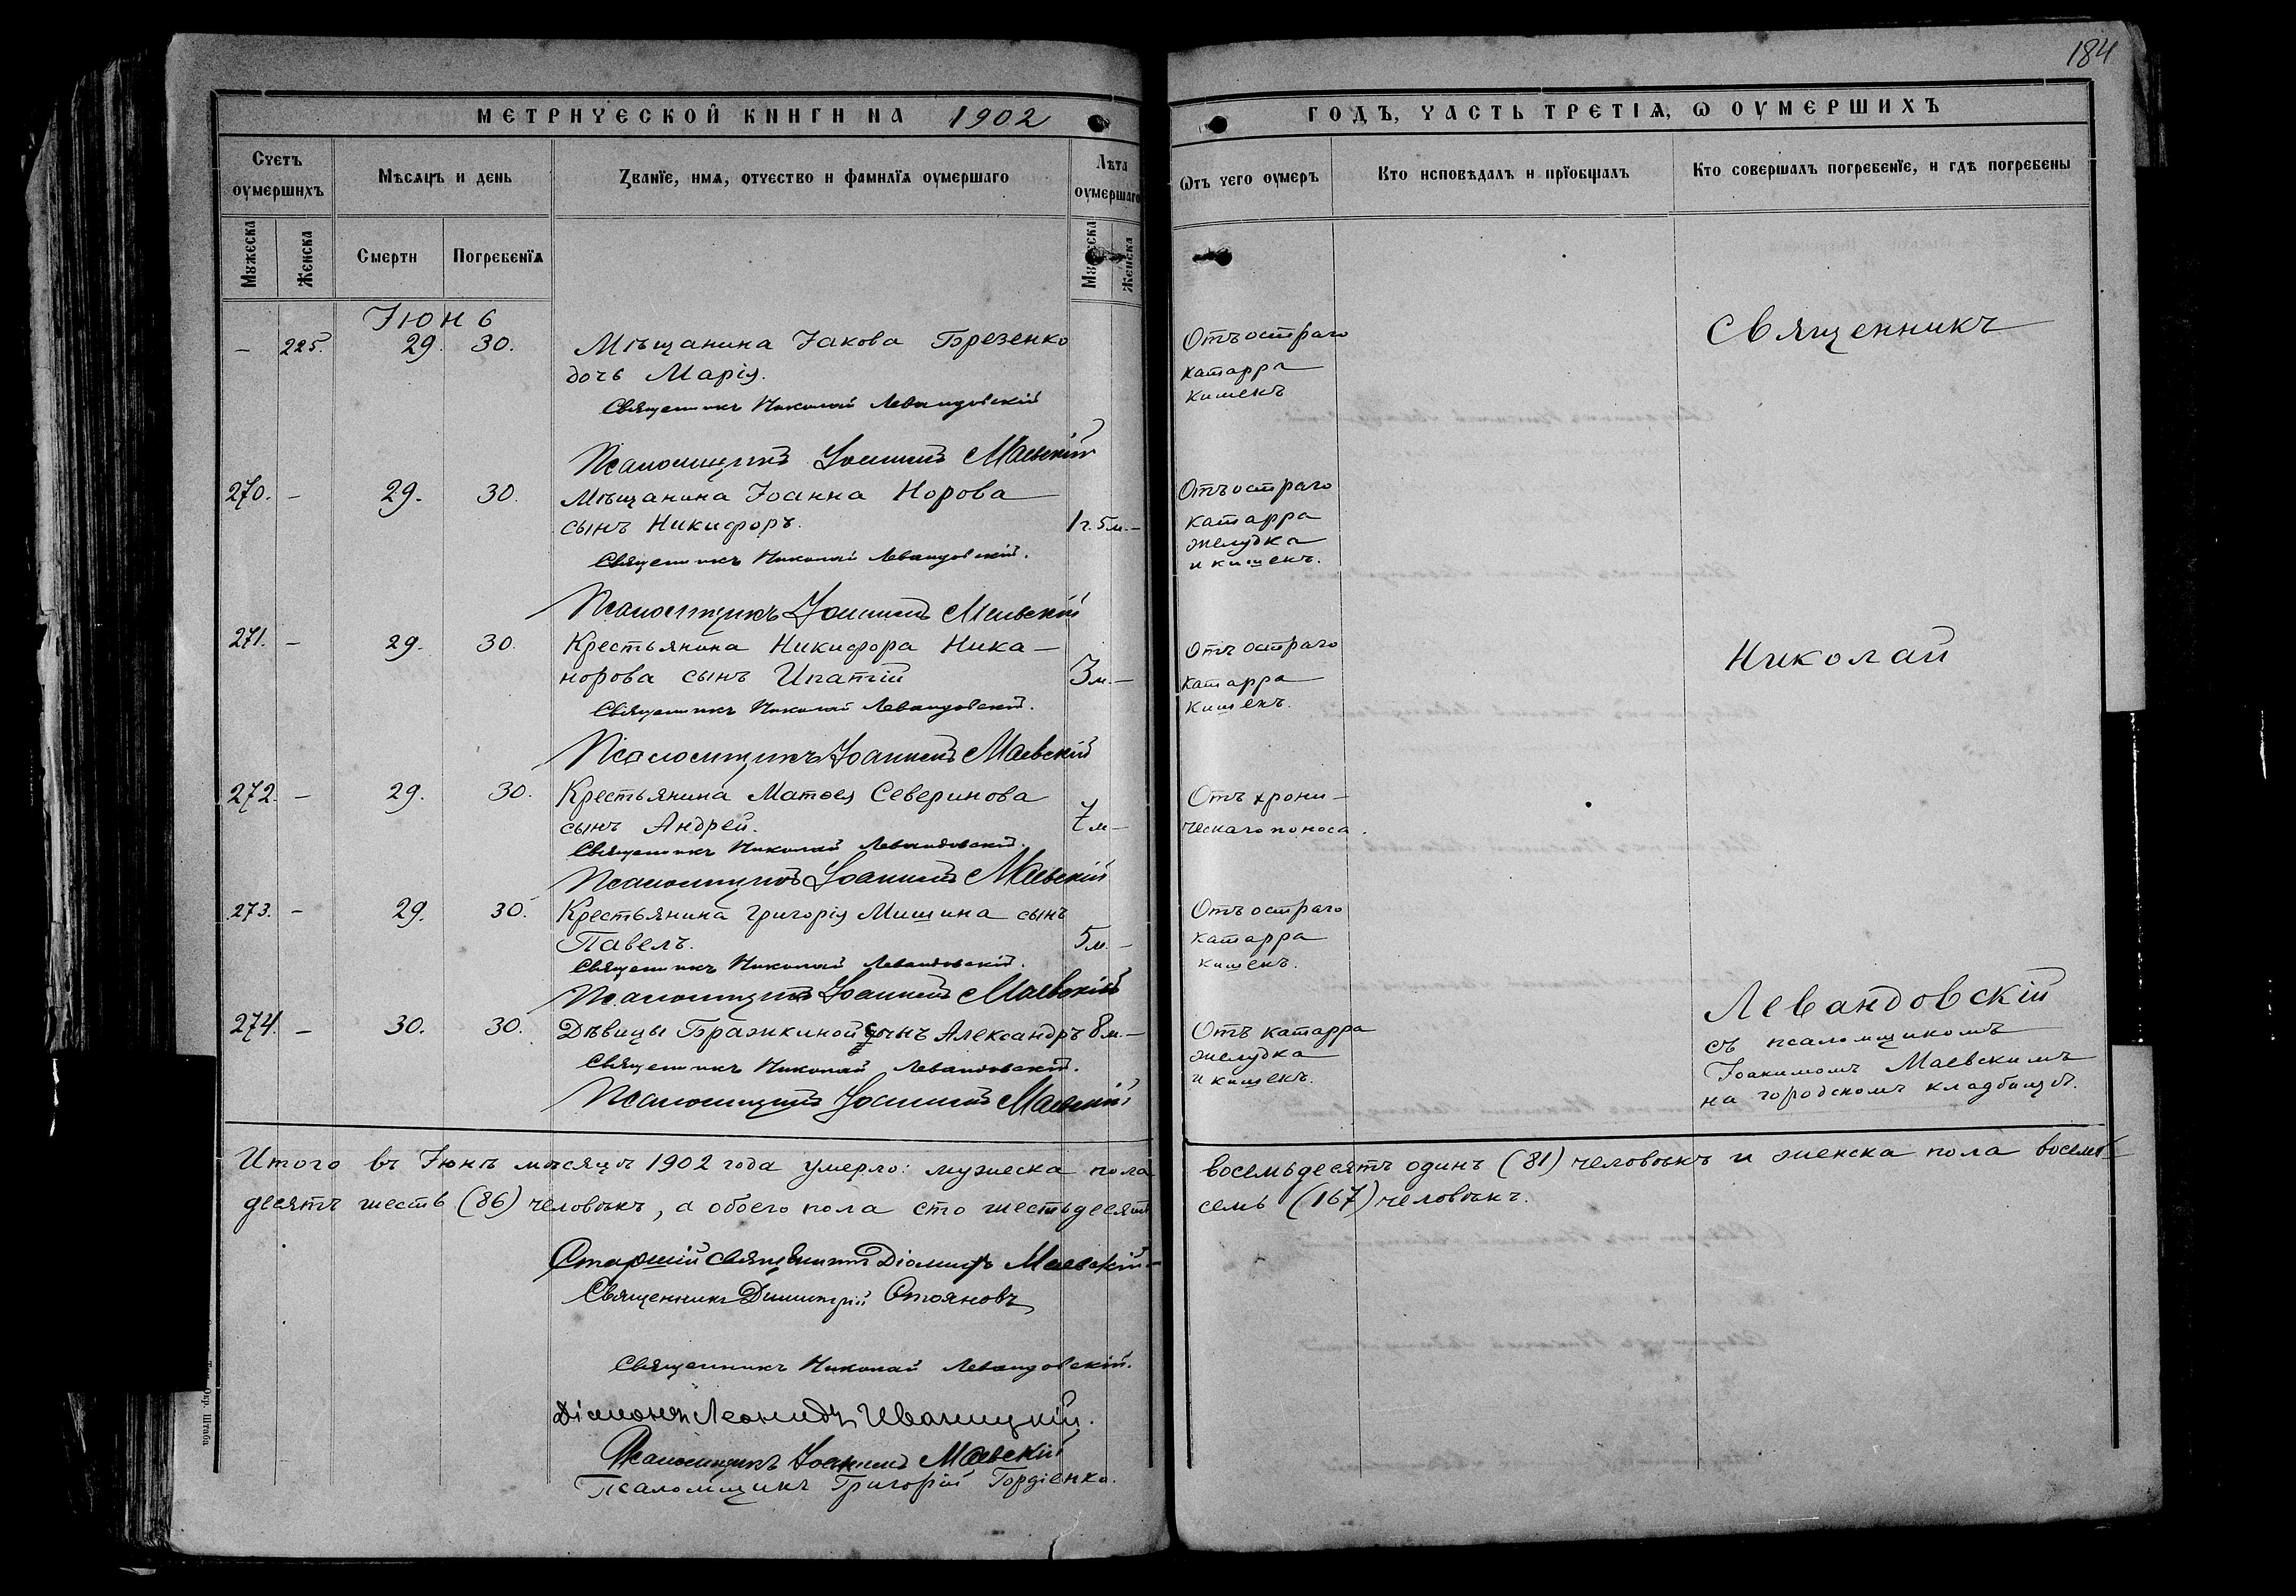 184
МЕТРИЧЕСКОЙ КНИГИ НА 1902
ГОДЪ, ЧАСТЬ ТРЕТІѦ, Ѡ ОУМЕРШИХЪ
Счетъ оумершихъ
Мѣсяцъ и день
Званїе, имѧ, отчество и фамилїѧ оумершаго
Лѣта оумершаго
Ѿтъ чего оумеръ
Кто исповѣдалъ и прїобщалъ
Кто совершалъ погребенїе, и гдѣ погребены
Мужеска
Женска
Смерти
Погребенїѧ
Мужеска
Женска
Іюнь
– 225. 29. 30. Мѣщанина Іакова Брезенко
дочь Марія.
Отъ остраго
катарра
кишекъ
Священникъ Николай Левандовскій
Псаломщикъ Іоакимъ Маевскій
270. – 29. 30. Мѣщанина Іоанна Норова
сынъ Никифоръ. 1 г. 5 м. –
Отъ остраго
катарра
желудка
и кишекъ.
Священникъ Николай Левандовскій.
Псаломщикъ Іоакимъ Маевскій
271. – 29. 30. Крестьянина Никифора Ника–
норова сынъ Ипатій 3 м. –
Отъ остраго
катарра
кишекъ.
Священникъ Николай Левандовскій.
Псаломщикъ Іоакимъ Маевскій
272. – 29. 30. Крестьянина Матѳея Северинова
сынъ Андрей. 7 м –
Отъ хрони–
ческаго поноса.
Священникъ Николай Левандовскій.
Псаломщикъ Іоакимъ Маевскій
273. – 29. 30. Крестьянина Григорія Мишина сынъ
Павелъ. 5 м. –
Отъ остраго
катарра
кишекъ.
Священникъ Николай Левандовскій.
Псаломщикъ Іоакимъ Маевскій
274. – 30. 30. Дѣвицы Бражкиной сынъ Александръ 8 м. –
Отъ катарра
желудка
и кишекъ.
Священникъ Николай Левандовскій.
Псаломщикъ Іоакимъ Маевскій
Священникъ
Николай
Левандовскій
съ псаломщикомъ
Іоакимомъ Маевскимъ
на городскомъ кладбищѣ.
Итого въ Іюнѣ мѣсяцѣ 1902 года умерло: мужеска пола восемьдесятъ одинъ (81) человѣкъ и женска пола восемь–
десятъ шесть (86) человѣкъ, а обоего пола сто шестьдесятъ семь (167) человѣкъ.
Старшій священникъ Діомидъ Маевскій
Священникъ Димитрій Стояновъ
Священникъ Николай Левандовскій.
Діаконъ Леонидъ Иваницкій.
Псаломщикъ Іоакимъ Маевскій
Псаломщикъ Григорій Гордіенко.
Окр. Штаба